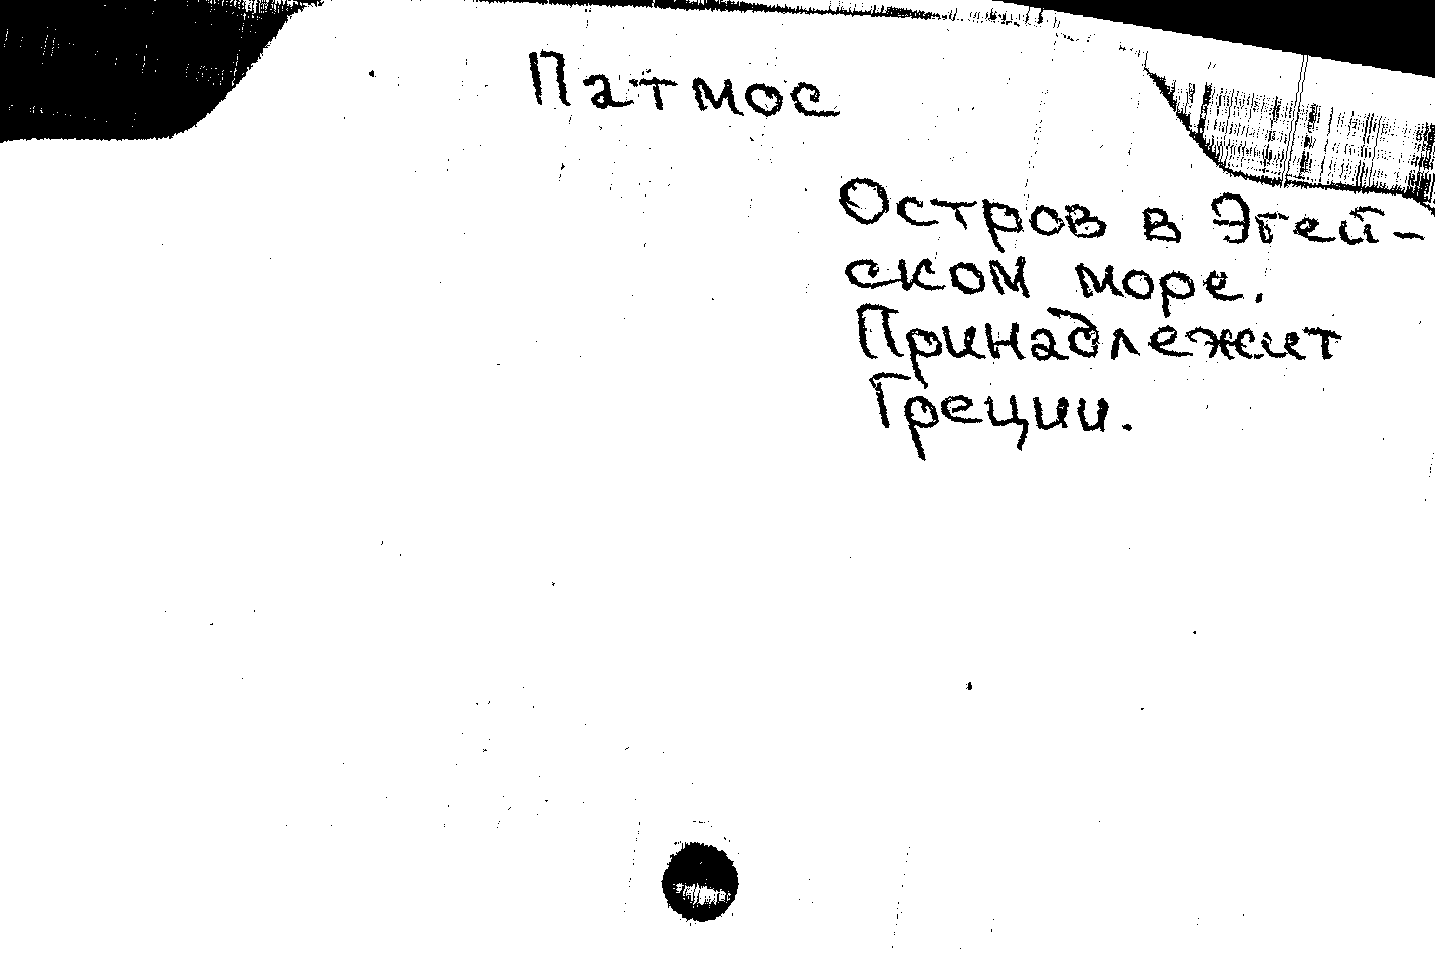 Патмос
Остров в Эгей-
ском море.
Принадлежит
Греции.